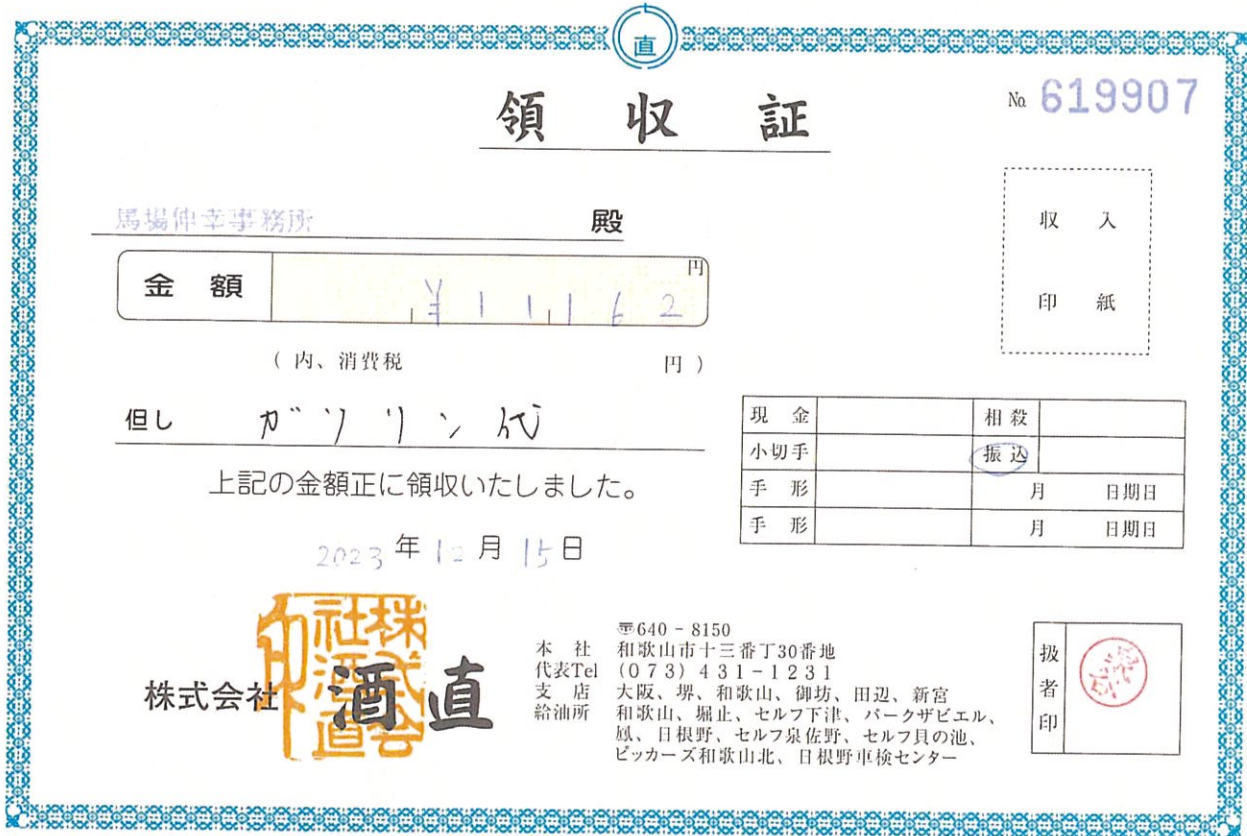 直
領収証
№ 619907
馬場伸幸事務所 殿
収入
印紙
金額 ¥11,162 円
(内、消費税 円)
但し ガソリン代
上記の金額正に領収いたしました。
2023年12月15日
現金 相殺
小切手 振込
手形 月 日期日
手形 月 日期日
株式会社酒直印
株式会社 酒直
〠640-8150
本社 和歌山市十三番丁30番地
代表Tel (073)431-1231
支店 大阪、堺、和歌山、御坊、田辺、新宮
給油所 和歌山、堀止、セルフ下津、パークザビエル、
鳳、日根野、セルフ泉佐野、セルフ貝の池、
ピッカーズ和歌山北、日根野車検センター
扱者印